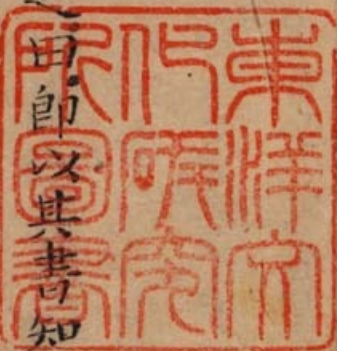 東洋文
化研究
所圖書
田即以其書知